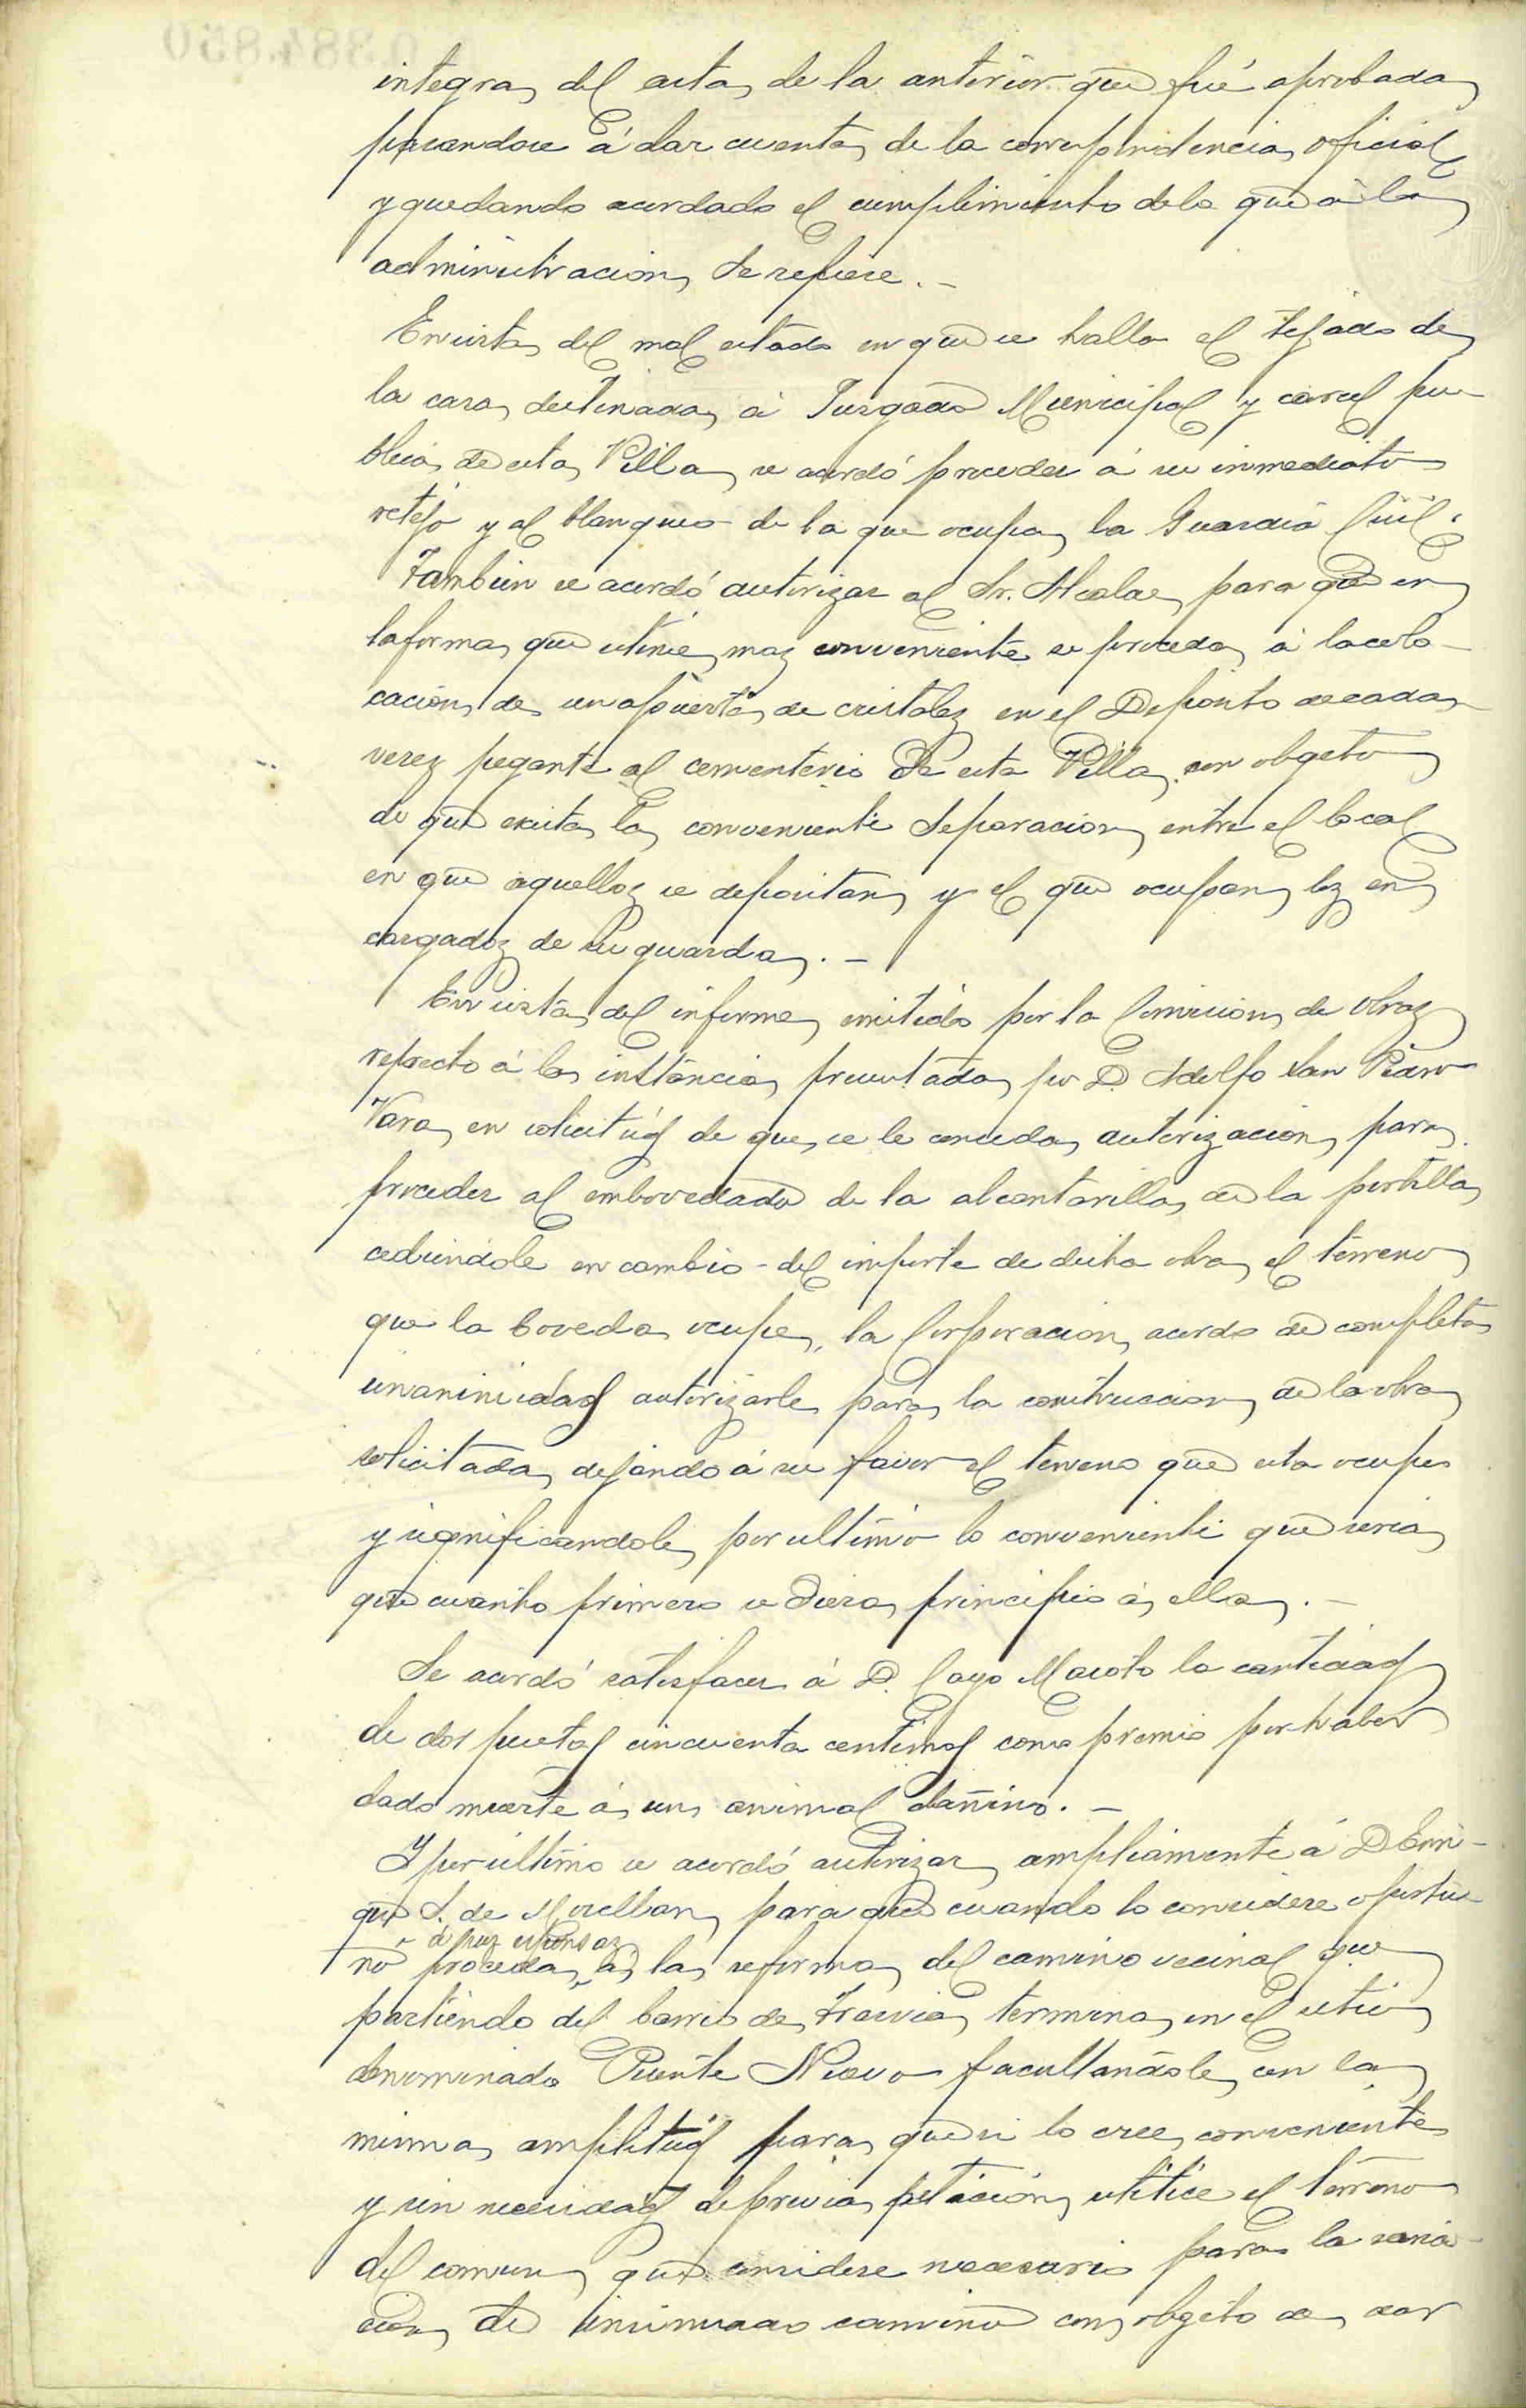 integra del acta de la anterior que fué aprobada
pasandose á dar cuenta de la correspondencia oficial
y quedando acordado el cumplimiento de la que á la
administracion se refiere. —
En vista del mal estado en que se halla el tejado de
la casa destinada á Juzgado Municipal y carcel pu-
blica de esta Villa se acordó proceder á su inmediato
retejo y al blanqueo de la que ocupa la Guardia Civil.
Tambien se acordó autorizar al Sr. Alcalde para que en
la forma que estime mas conveniente se proceda á la colo-
cacion de una puerta de cristales en el Deposito de cada-
veres pegante al cementerio de esta Villa con objeto
de que exista la conveniente separacion entre el local
en que aquellos se depositan y el que ocupan los en
cargados de su guarda. —
En vista del informe emitido por la Comision de obras
respecto á la instancia presentada por D. Adolfo San Pedro
Vara en solicitud de que se le conceda autorizacion para
proceder al embovedado de la alcantarilla de la portilla
cediendole en cambio del importe de dicha obra el terreno
que la boveda ocupe, la Corporacion acordo de completa
unanimidad autorizarle para la construccion de la obra
solicitada dejando á su favor el terreno que esta ocupe
y significandole por ultimo lo conveniente que seria
que cuanto primero se diera principio á ella. —
Se acordó satisfacer á D. Cayo Macoto la cantidad
de dos pesetas cincuenta centimos como premio por haber
dado muerte á un animal dañino. —
Y por ultimo se acordó autorizar ampliamente á D Enri-
que S. de Movellan para que cuando lo considere oportu-
á sus espensas
no proceda á la reforma del camino vecinal que
partiendo del barrio de Travia termina en el sitio
denominado Puente Nuevo facultandole con la
misma amplitud para que si lo cree conveniente
y sin necesidad de previa peticion utilice el terreno
del comun que considere necesario para la varia-
cion de insinuado camino con objeto de dar